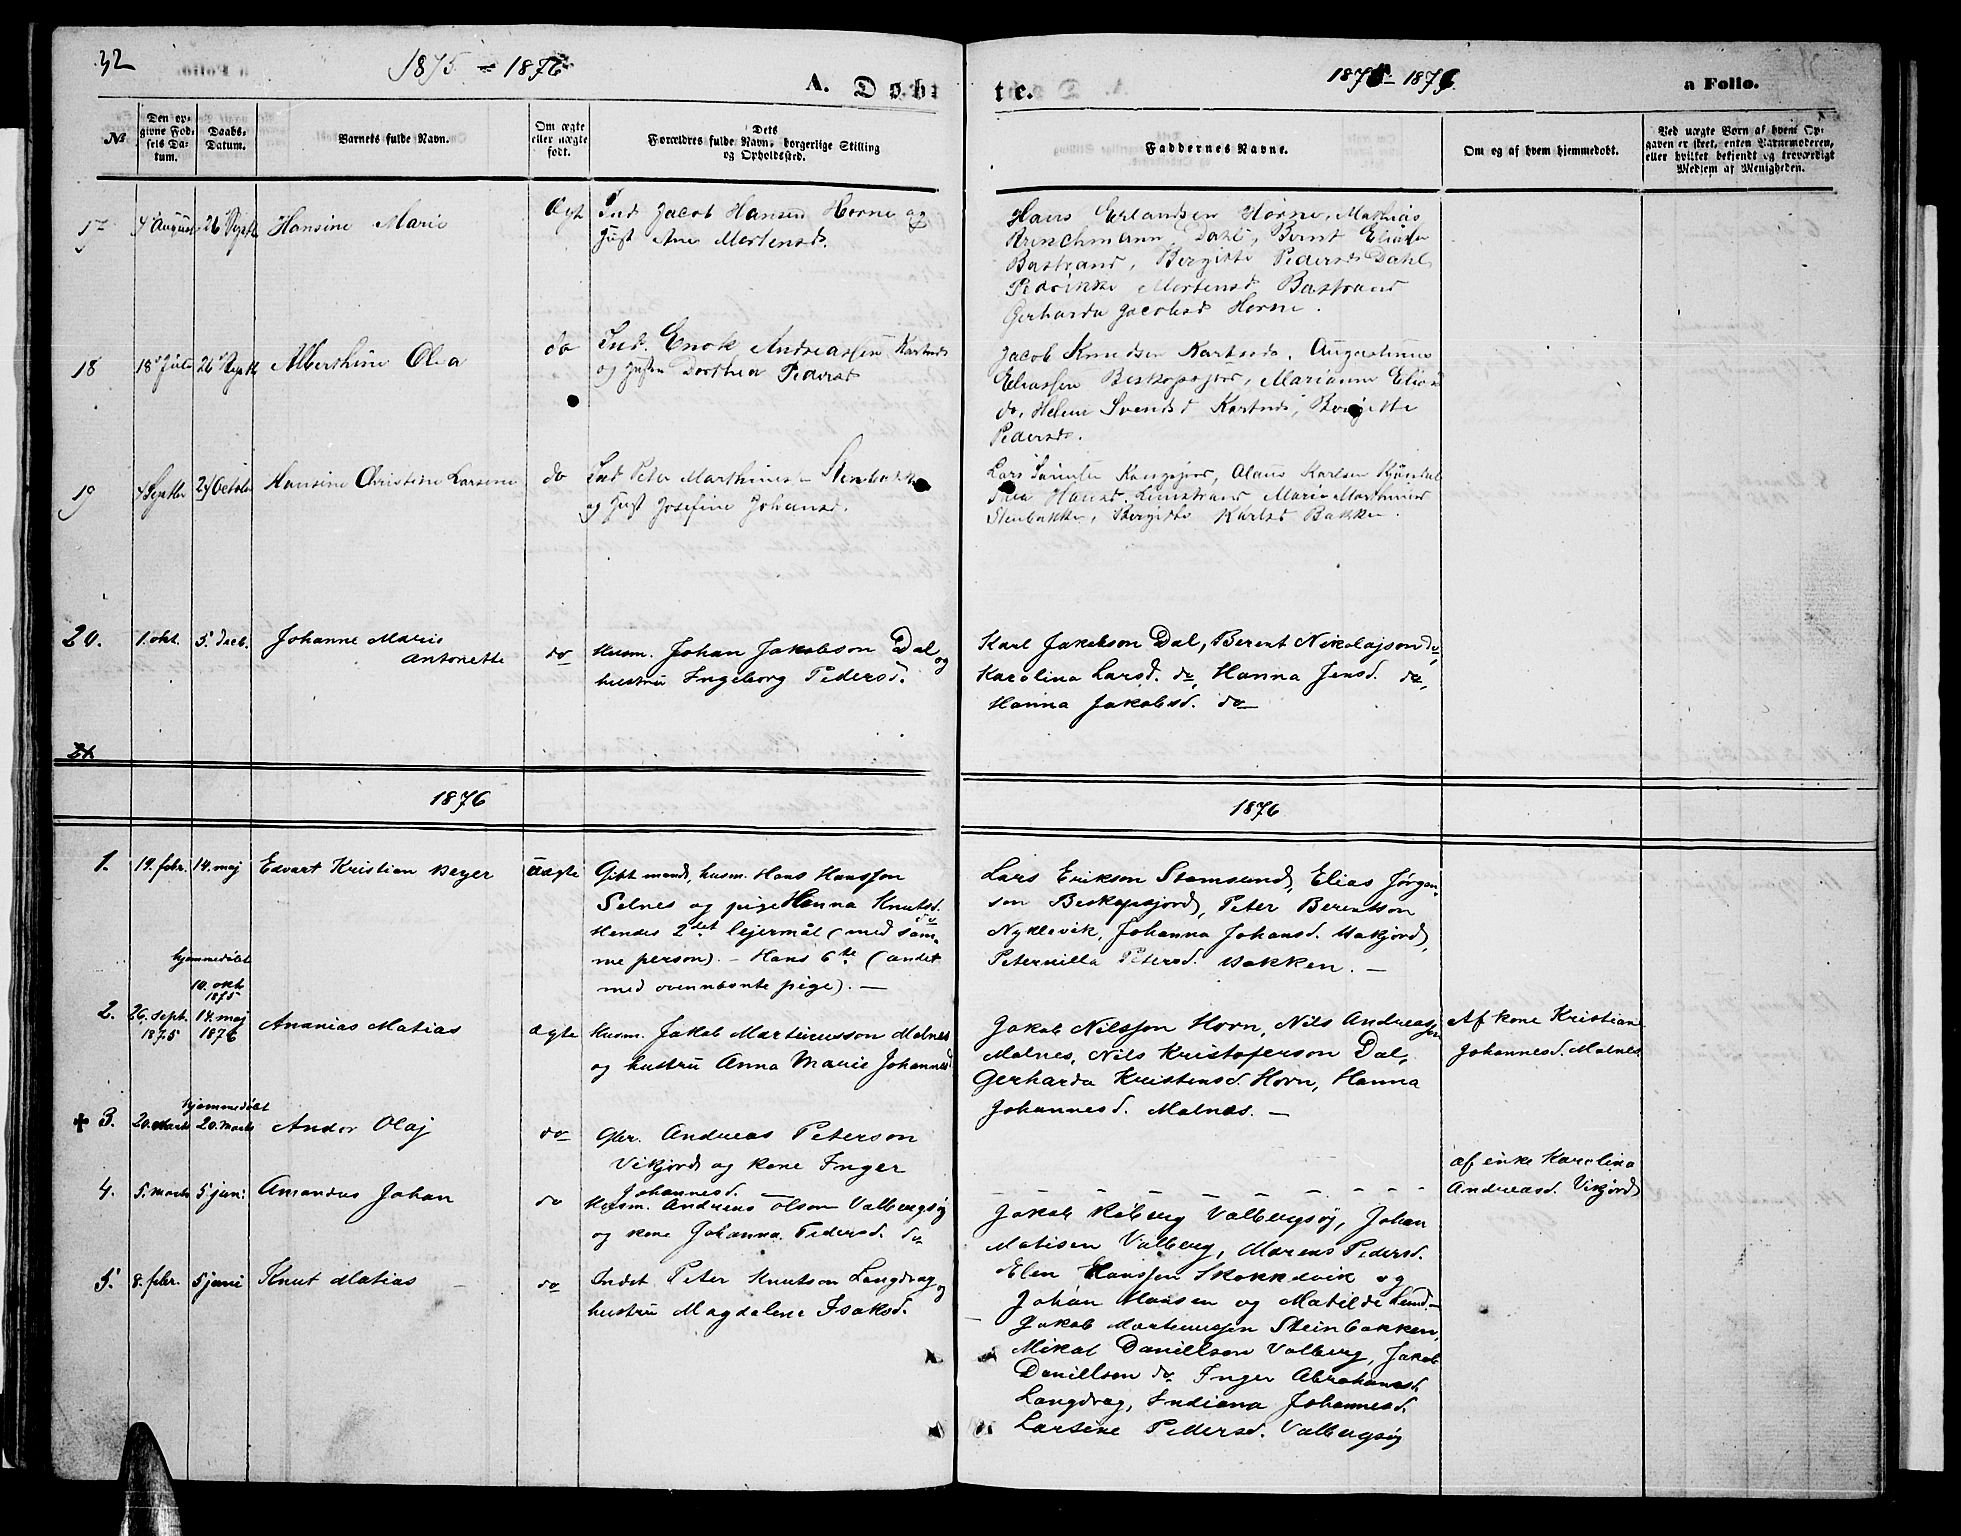 32
1875 - 1876
A. Døbte.
1875 - 1876.
a Folio.
№
Den opgivne Fødsels Datum.
Daabs-Datum.
Barnets fulde Navn.
Om ægte eller uægte født.
Dets Forældres fulde Navn, borgerlige Stilling og Opholdssted.
Faddernes Navne.
Om og af hvem hjemmedøbt.
Ved uægte Børn af hvem Opgaven er skeet, enten Barnemoderen, eller hvilket bekjendt og troværdigt Medlem af Menigheden.
17 4 August 26 Septbr Hansine Marie Ægt Ind Jacob Hansen Horne og
Hust Ane Mortensd.
Hans Erlandsen Horne, Mathias
Dahl, Bernt Eliasen
Bastrand, Bergitte Pedersd Dahl
Mortensd Bastrand
Gerharda Jacobsd Horne.
18 18 Juli 26 Septbr Alberthine Olea do Ind. Enok Andreassen Kartnes
og Husten Dorthea Pedersd
Jacob Knudsen Kartnes, Augustinus
Eliassen Beskopsjord, Marianne Eliasd
do, Helene Svendsd Kartnes, Bergitte
Pedersd.
19 4 Septbr 24 October Hansine Christine Larsine do Ind Peter Marthinus Stenbakke
og Hust Josefine Johansd.
Lars Karlsen
Hansd. Limstrand Marie Marthinusd
Stenbakke, Bergitte Karlsd Bakken.
20. 1. okt. 5. Decb. Johanne Marie
Antonette
do husm. Johan Jakobson Dal og
hustru Ingeborg Pedersd.
Karl Jakobson Dal, Berent Nikolajson do,
Karolina Larsd. do, Hanna Jensd. do,
Hanna Jakobsd. do
21
1876
1876
1. 19. febr. 14. maj Edvart Kristian Beyer uægte Gift mand, husm. Hans Hansson
Selnes og pige Hanna Knutsd. do
Hendes 2det lejermål (med sam-
me person). - Hans 6te (andet
med ovennævnte pige). -
Lars Erikson Stamsund, Elias Jørgen-
son Beskopsjord, Peter Berentson
Nyklevik, Johanna Johansd. Uakjord,
Peternilla Petersd. Bakken. -
hjemmedøbt
10. okt.
1875
2. 26. Sept. 1875 14. maj 1876 Ananias Matias ægte husm. Jakob Martinusson Malnes
og hustru Anna Marie Johannesd
Jakob Nilsson Horn, Nils Andreasson
Malnes, Nils Kristoferson Dal,
Gerharda Kristensd. Horn, Hanna
Johannesd. Malnes. -
Af kone Kristiane
Johannesd. Malnes
hjemmedøbt
✝ 3. 20. Marts 20. Marts Andor Olaj do Gbr. Andreas Peterson
Vikjord og kone Inger
Johannesd.
af enke Karolina
Andreasd. Vikjord
4. 5. Marts 5 juni Amandus Johan do Husm. Andreas Olson Valbergsøj
og kone Johanna Pedersd. do
Jakob Røberg Valbergsøj, Johan
Matisen Valberg, Marens Pedersd.
Elen Hanssen Skokkelvik og
Johan Hansen og Matilde Lund -
5. 8. febr. 5 juni Knut Matias do Indst. Peter Knutson Langdrag og
hustru Magdalene Isaksd.
Jakob Martinussen Steinbakken,
Mikal Daniellson Valberg, Jakob
Daniellson do Inger Abrahamsd.
Langdrag, Indiana Johannesd.
Larsine Pedersd. Valbergsøj